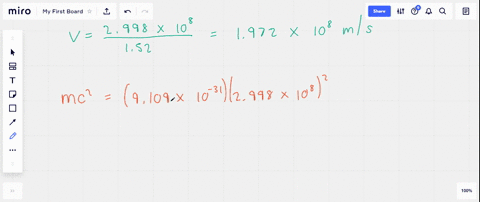 miro My First Board Share
V = 2.998 × 10⁸ / 1.52 = 1.972 × 10⁸ m/s
mc² = (9.109 × 10⁻³¹)(2.998 × 10⁸)²
100%